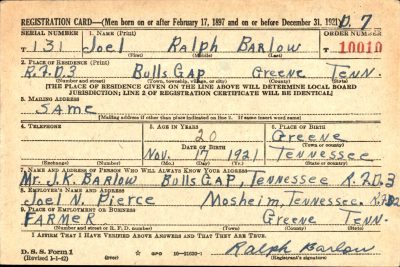 REGISTRATION CARD—(Men born on or after February 17, 1897 and on or before December 31, 1921) D. 7
SERIAL NUMBER 1. NAME (Print) ORDER NUMBER
T 131 Joel Ralph Barlow 10010
(First) (Middle) (Last)
2. PLACE OF RESIDENCE (Print)
R.F.D.3 Bulls Gap Greene Tenn.
(Number and street) (Town, township, village, or city) (County) (State)
[THE PLACE OF RESIDENCE GIVEN ON THE LINE ABOVE WILL DETERMINE LOCAL BOARD
JURISDICTION; LINE 2 OF REGISTRATION CERTIFICATE WILL BE IDENTICAL]
3. MAILING ADDRESS
Same
[Mailing address if other than place indicated on line 2. If same insert word same]
4. TELEPHONE 5. AGE IN YEARS 6. PLACE OF BIRTH
20 Greene
DATE OF BIRTH (Town or county)
Nov. 17 1921 Tennessee
(Exchange) (Number) (Mo.) (Day) (Yr.) (State or country)
7. NAME AND ADDRESS OF PERSON WHO WILL ALWAYS KNOW YOUR ADDRESS
Mr. J.K. Barlow Bulls Gap, Tennessee R.F.D.3
8. EMPLOYER'S NAME AND ADDRESS
Joel N. Pierce Mosheim, Tennessee. R.F.D2
9. PLACE OF EMPLOYMENT OR BUSINESS
Farmer Greene Tenn.
(Number and street or R. F. D. number) (Town) (County) (State)
I AFFIRM THAT I HAVE VERIFIED ABOVE ANSWERS AND THAT THEY ARE TRUE.
D. S. S. Form 1 GPO 16—21630-1 Ralph Barlow
(Revised 1-1-42) (Registrant's signature)